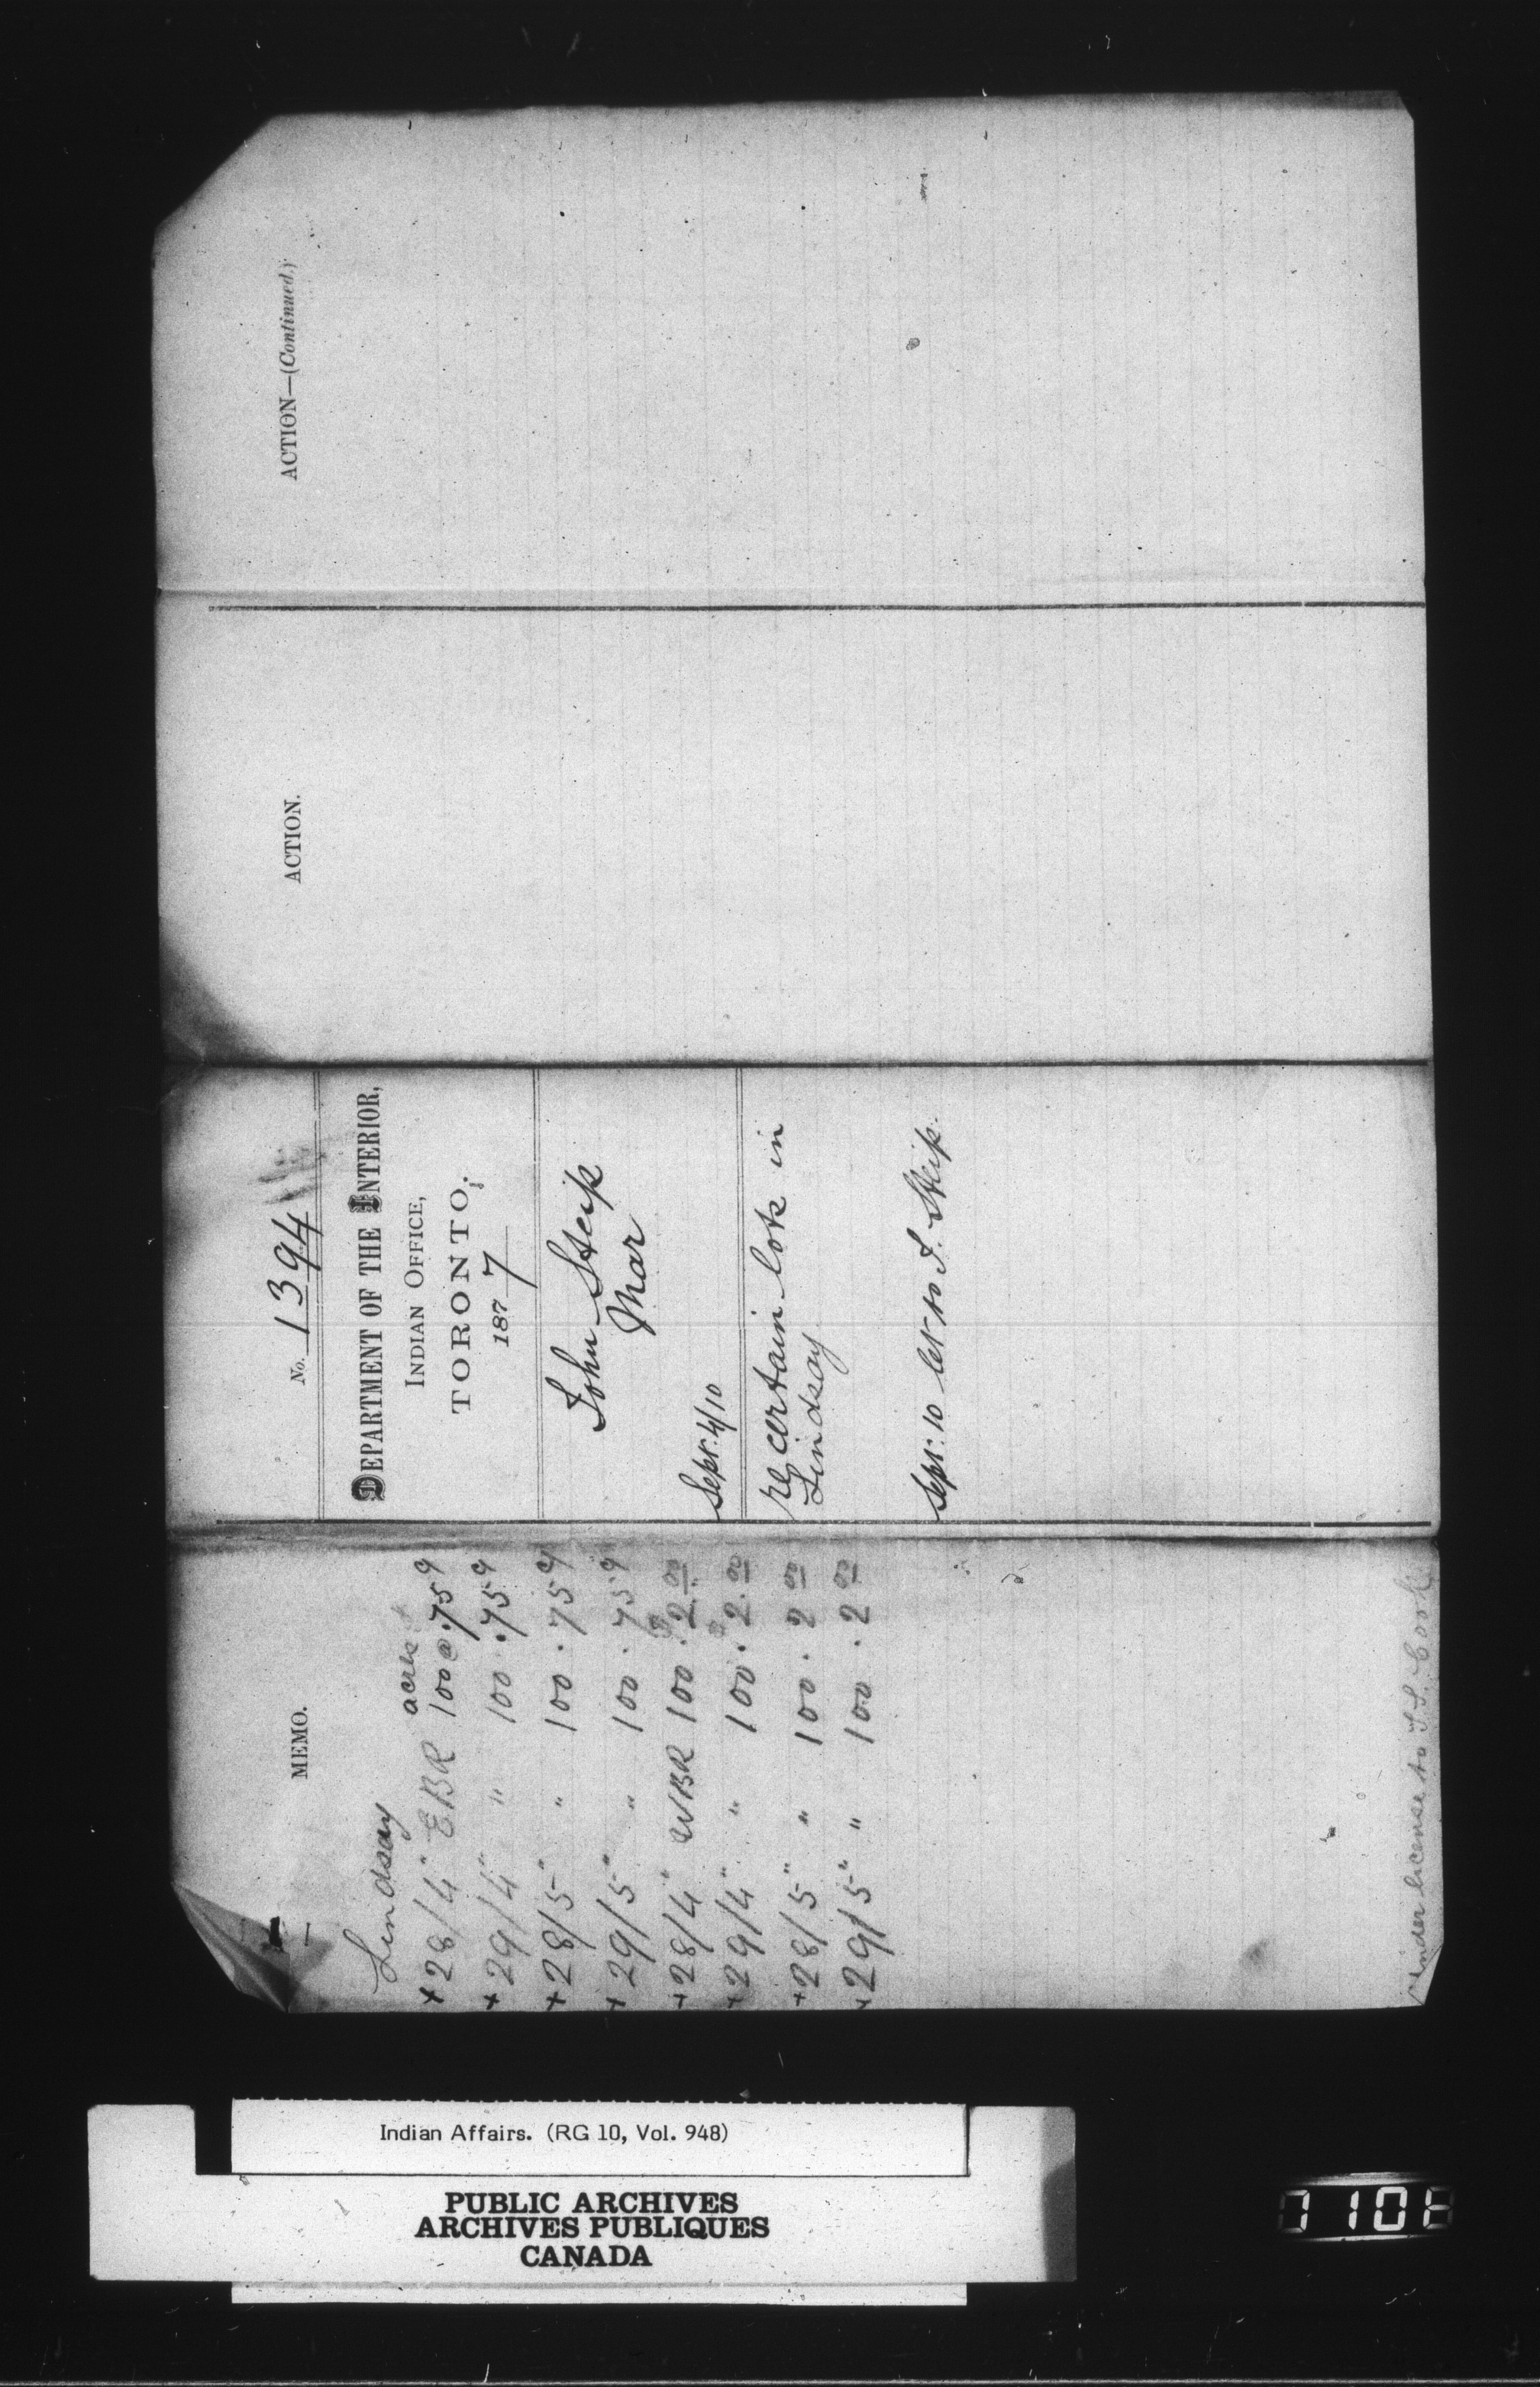 MEMO.
Lindsay
acres
+ 28/4" EBR 100 @ .75 9
+ 29/4" " 100 . .75 9
+ 28/5" " 100 . 75 9
+ 29/5" " 100 . 75 9
+ 28/4" WBR 100 . 2.00
+ 29/4" " 100 . 2.00
+ 28/5" " 100 . 2 00
+ 29/5" " 100 . 2 00
under license to J. S. Cook
No. 1394
DEPARTMENT OF THE INTERIOR,
INDIAN OFFICE,
TORONTO,
1877
John Steip
Mar
Sept. 4/10
re certain lots in
Lindsay
Sept: 10 let to J. Steip.
ACTION.
ACTION—(Continued.)
Indian Affairs. (RG 10, Vol. 948)
PUBLIC ARCHIVES
ARCHIVES PUBLIQUES
CANADA